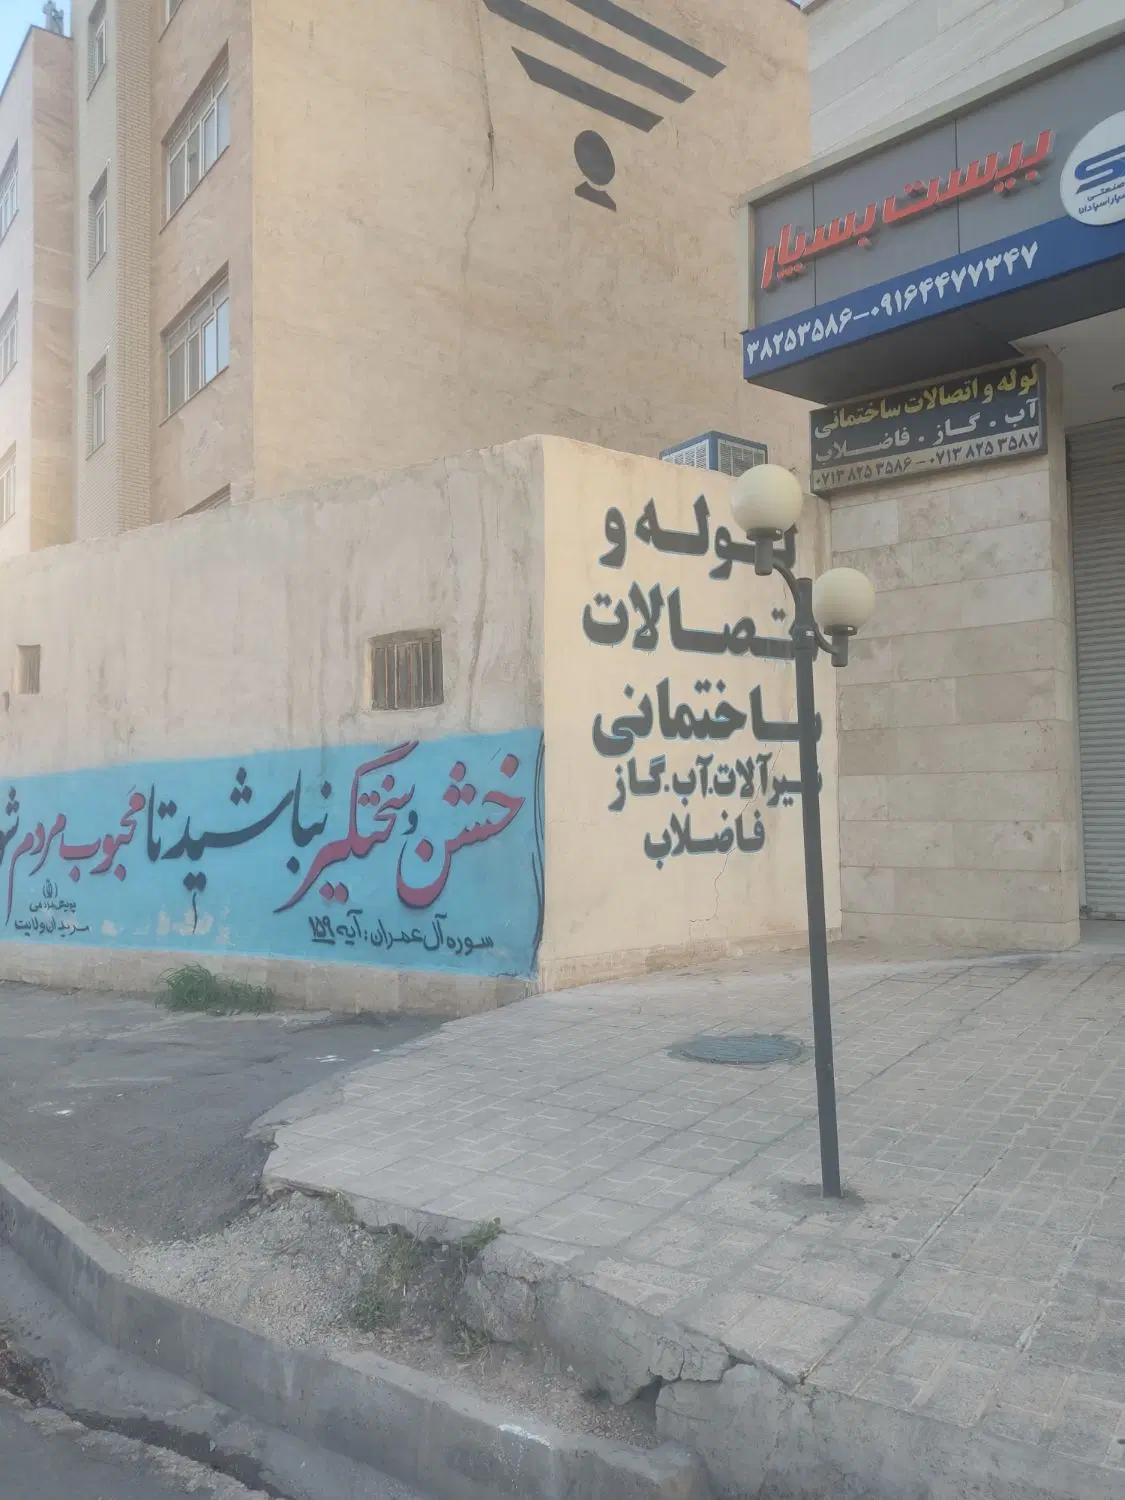 بیست بسپار
۳۸۲۵۳۵۸۶-۰۹۱۶۴۴۷۷۳۴۷
لوله و اتصالات ساختمانی
آب . گاز . فاضلاب
۰۷۱۳ ۸۲۵ ۳۵۸۶ - ۰۷۱۳ ۸۲۵ ۳۵۸۷
لوله و
اتصالات
ساختمانی
شیرآلات.آب.گاز
فاضلاب
خشن و سختگیر نباشید تا محبوب مردم
سوره آل عمران: آیه ۱۵۹